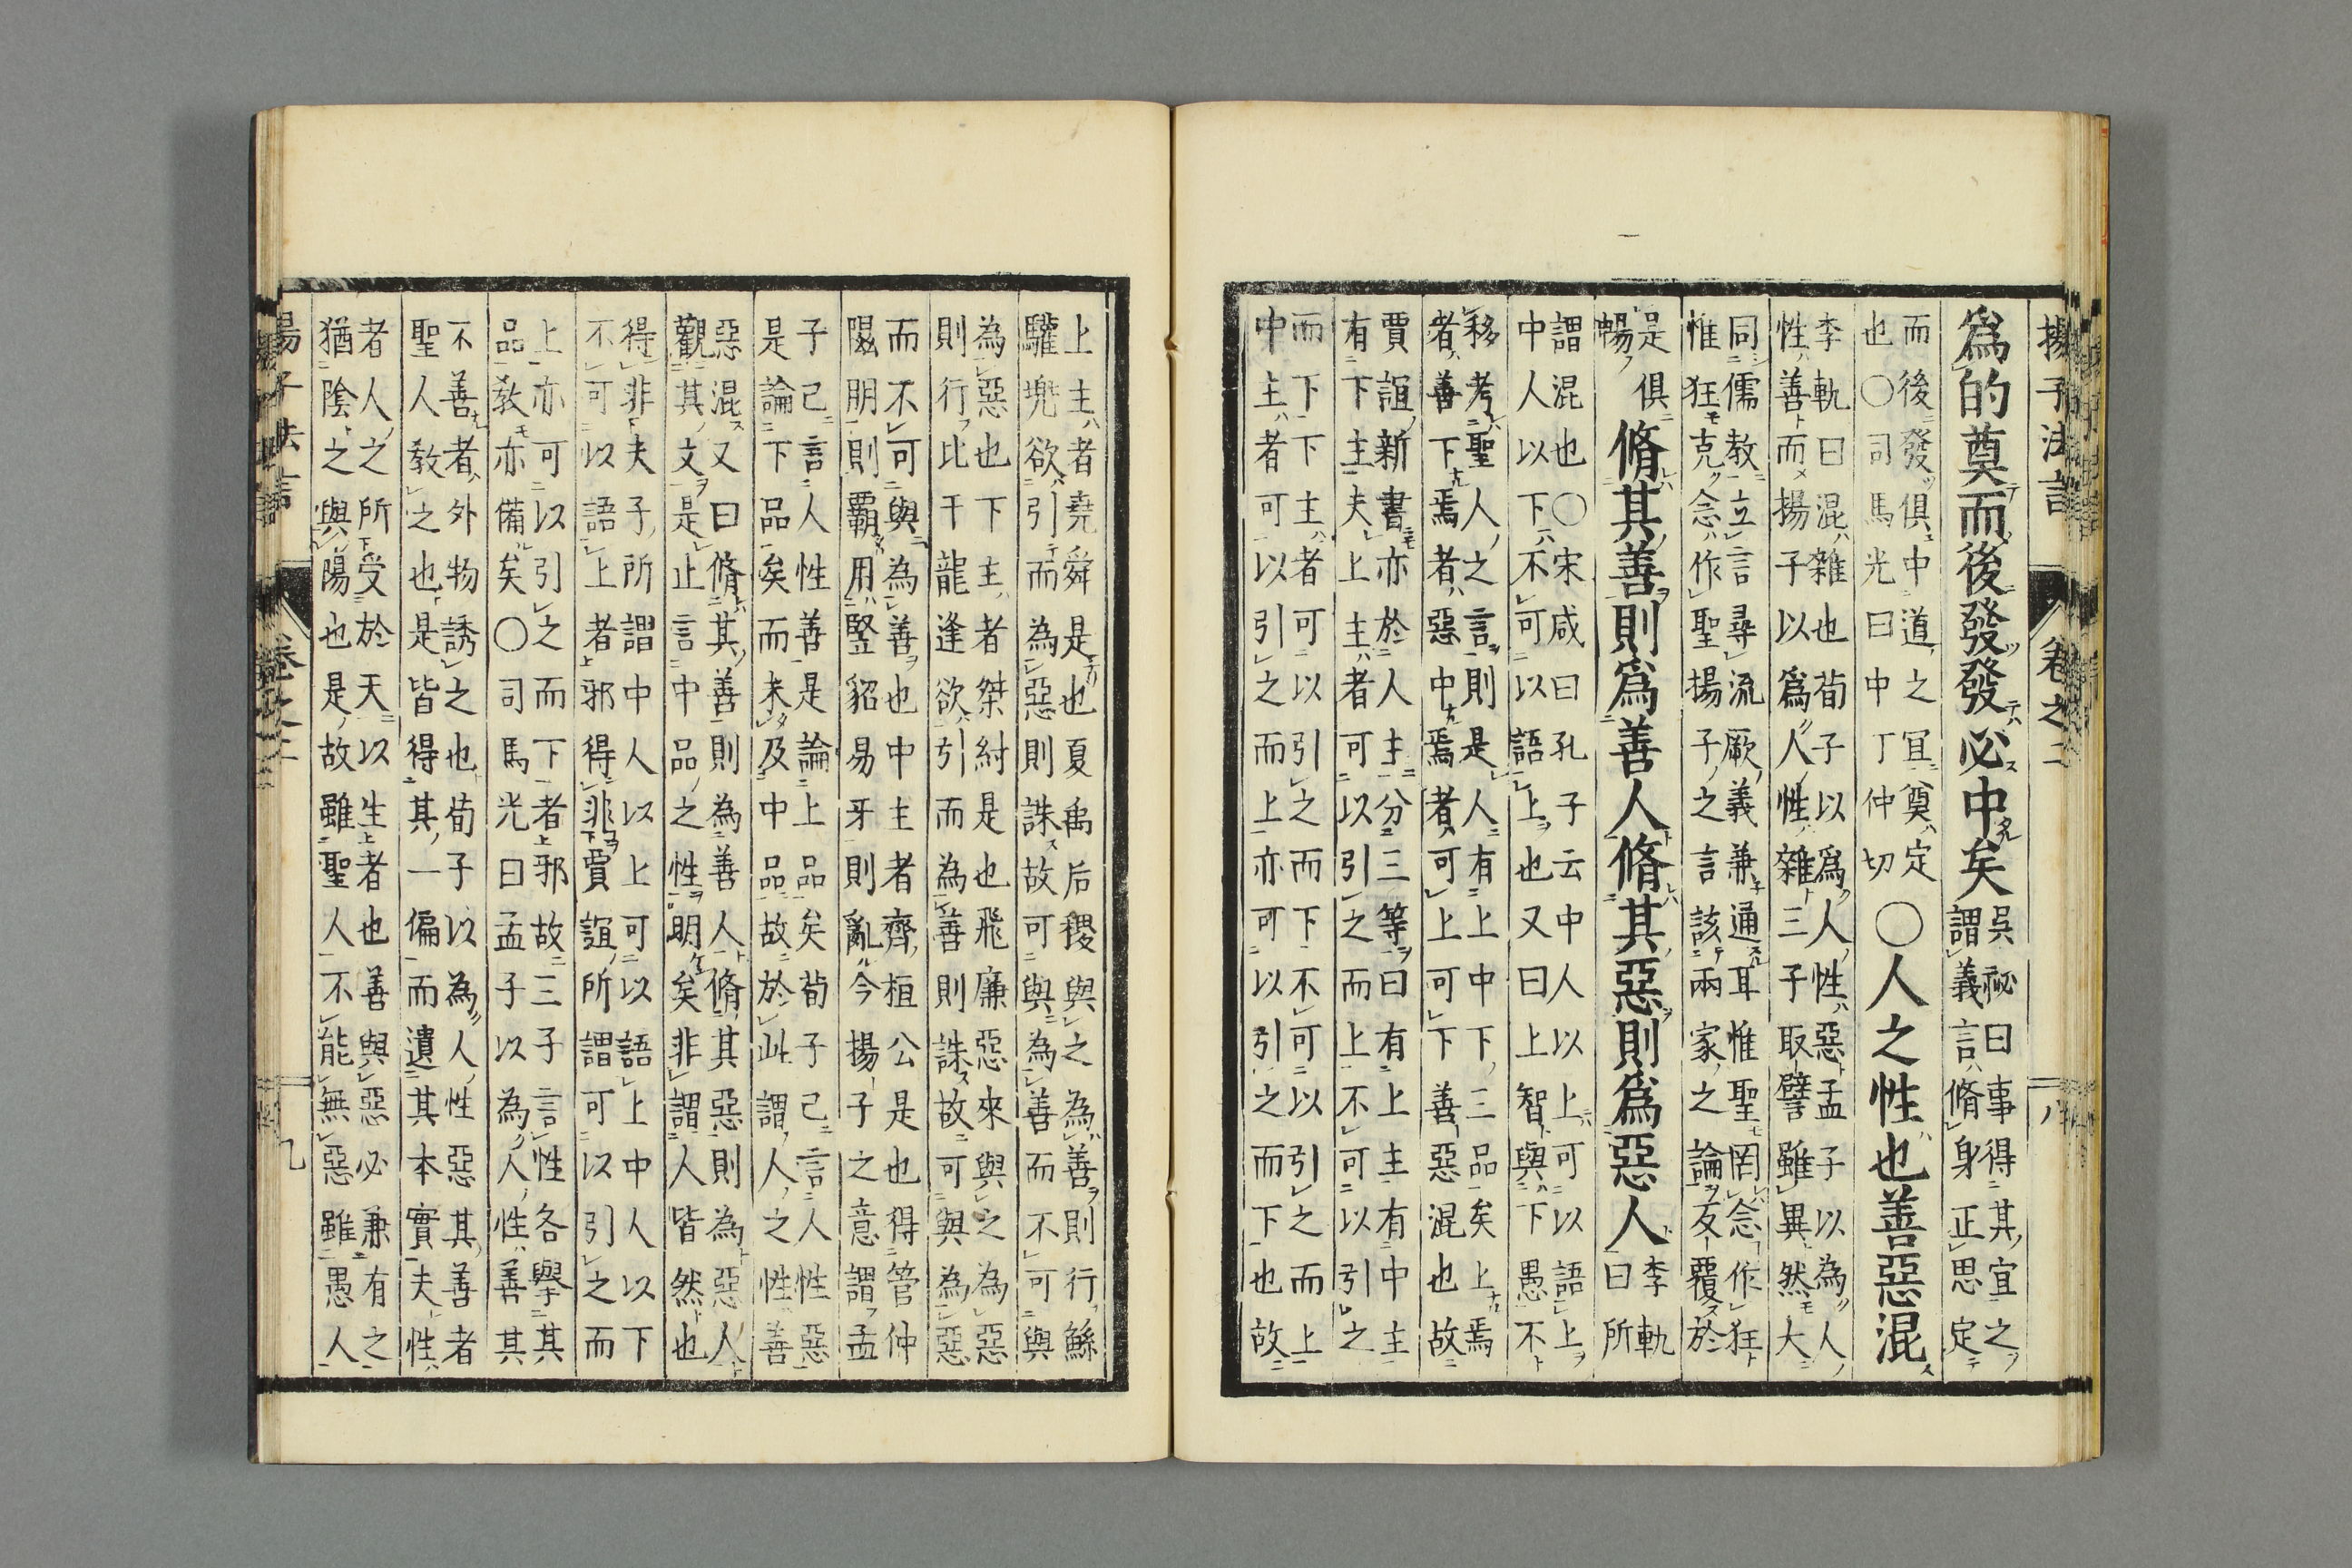 揚子法言 卷之二 八
爲的奠而後發發必中矣 吳祕曰事得其宜之
謂義言脩身正思定
而後發俱中道之冝奠定
也〇司馬光曰中丁仲切
〇人之性也善惡混
李軌曰混雜也荀子以爲人性惡孟子以為人
性善而揚子以爲人性雜三子取譬雖異然大
同儒教立言尋流厥義兼通耳惟聖罔念作狂
惟狂克念作聖揚子之言該兩家之論友覆於
是俱
暢
脩其善則爲善人脩其惡則爲惡人 李軌
曰所
謂混也〇宋咸曰孔子云中人以上可以語上
中人以下不可以語上也又曰上智與下愚不
移考聖人之言則是人有上中下三品矣上焉
者善下焉者惡中焉者可上可下善惡混也故
賈誼新書亦於人主分三等曰有上主有中主
有下主夫上主者可以引之而上不可以引之
而下下主者可以引之而下不可以引之而上
中主者可以引之而上亦可以引之而下也故
上主者堯舜是也夏禹后稷與之為善則行鯀
驩兜欲引而為惡則誅故可與為善而不可與
為惡也下主者桀紂是也飛廉惡來與之為惡
則行比干龍逢欲引而為善則誅故可與為惡
而不可與為善也中主者齊桓公是也得管仲
隰朋則霸用豎貂易牙則亂今揚子之意謂孟
子已言人性善是論上品矣荀子已言人性惡
是論下品矣而未及中品故於此謂人之性善
惡混又曰脩其善則為善人脩其惡則為惡人
觀其文是止言中品之性明矣非謂人皆然也
得非夫子所謂中人以上可以語上中人以下
不可以語上者邪得非賈誼所謂可以引之而
上亦可以引之而下者邪故三子言性各舉其
品教亦備矣〇司馬光曰孟子以為人性善其
不善者外物誘之也荀子以為人性惡其善者
聖人教之也是皆得其一偏而遺其本實夫性
者人之所受於天以生者也善與惡必兼有之
猶陰之與陽也是故雖聖人不能無惡雖愚人
揚子法言 卷之二 九